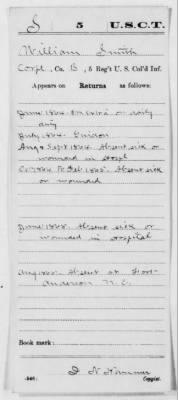 S 5 U.S.C.T.
William Smith
Corpl, Co. B, 5 Reg't U. S. Col'd Inf.
Appears on Returns as follows:
June 1864. On extra or daily
duty
July 1864.
Aug & Sept 1864. Absent sick or
wounded in Hospl
Oct 1864 to Feb 1865. Absent sick
or wounded
June 1865. Absent sick or
wounded in hospital
Aug 1865. Absent at Fort
Anderson N. C.
Book mark:
Copyist.